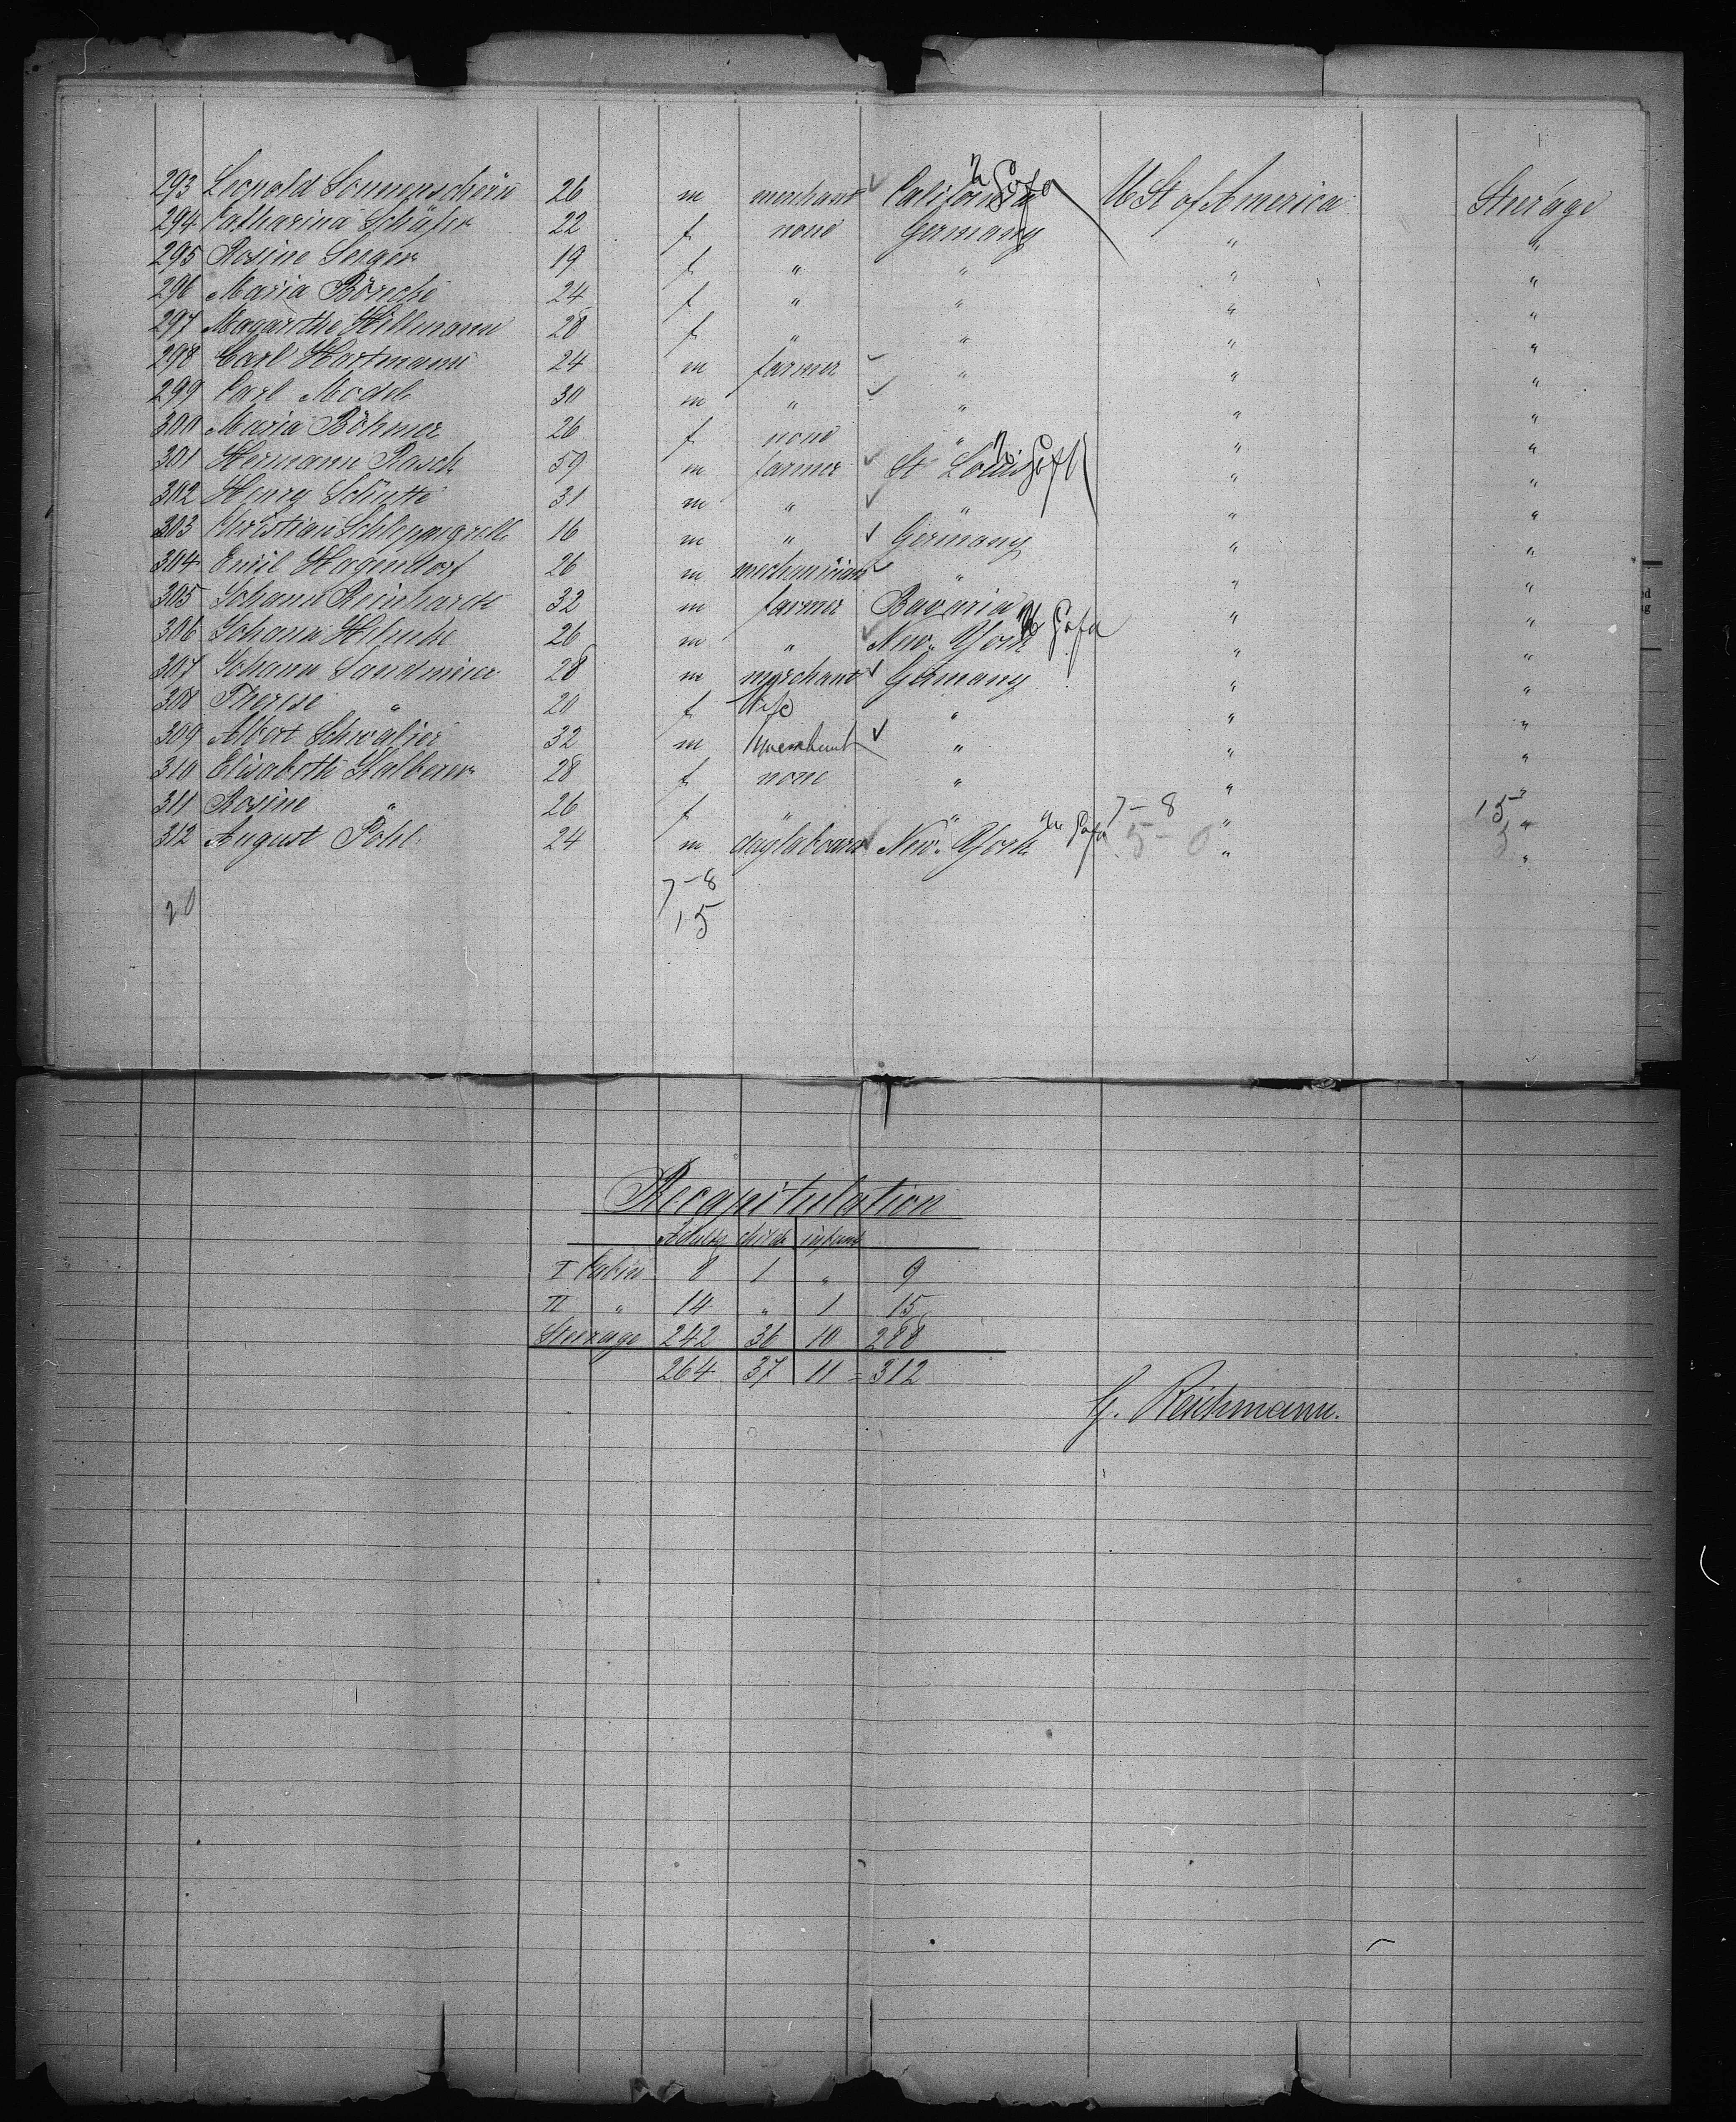 293 Leopold Sonnenschein 26 m merchant ✓ California U St of America Steerage
294 Catharina Schäfer 22 f none Germany " "
295 Rosine Seeger 19 f " " " "
296 Maria 24 f " " " "
297 Magarethe Hillmann 28 f " " " "
298 Carl Hartmann 24 m farmer ✓ " " "
299 Carl Model 30 m " ✓ " " "
300 Maria Böhmer 26 f none " " "
301 Hermann Rasch 59 m farmer ✓ St Louis " "
302 Henry Schütte 31 m " ✓ " " "
303 Christian Schleppegrell 16 m " ✓ Germany " "
304 Emil Hagendorf 26 m mechanician ✓ " " "
305 Johann Reinhardt 32 m farmer Bavaria " "
306 Johann 26 m " ✓ New-York " "
307 Johann Sandmeier 28 m merchant ✓ Germany " "
308 Therese " 20 f Wife " " "
309 Albert 32 m merchant ✓ " " "
310 Elisabeth Kalberer 28 f none " " "
311 Rosine " 26 f " " 7-8 " 15 "
312 August Pohl 24 m daylabourer ✓ New-York 5-0 " "
7-8
20 15
Recapitulation
Adults childr infants
I Cabin 8 1 " 9
II " 14 " 1 15
Steerage 242 36 10 288
264 37 11 = 312
G. Reichmann.